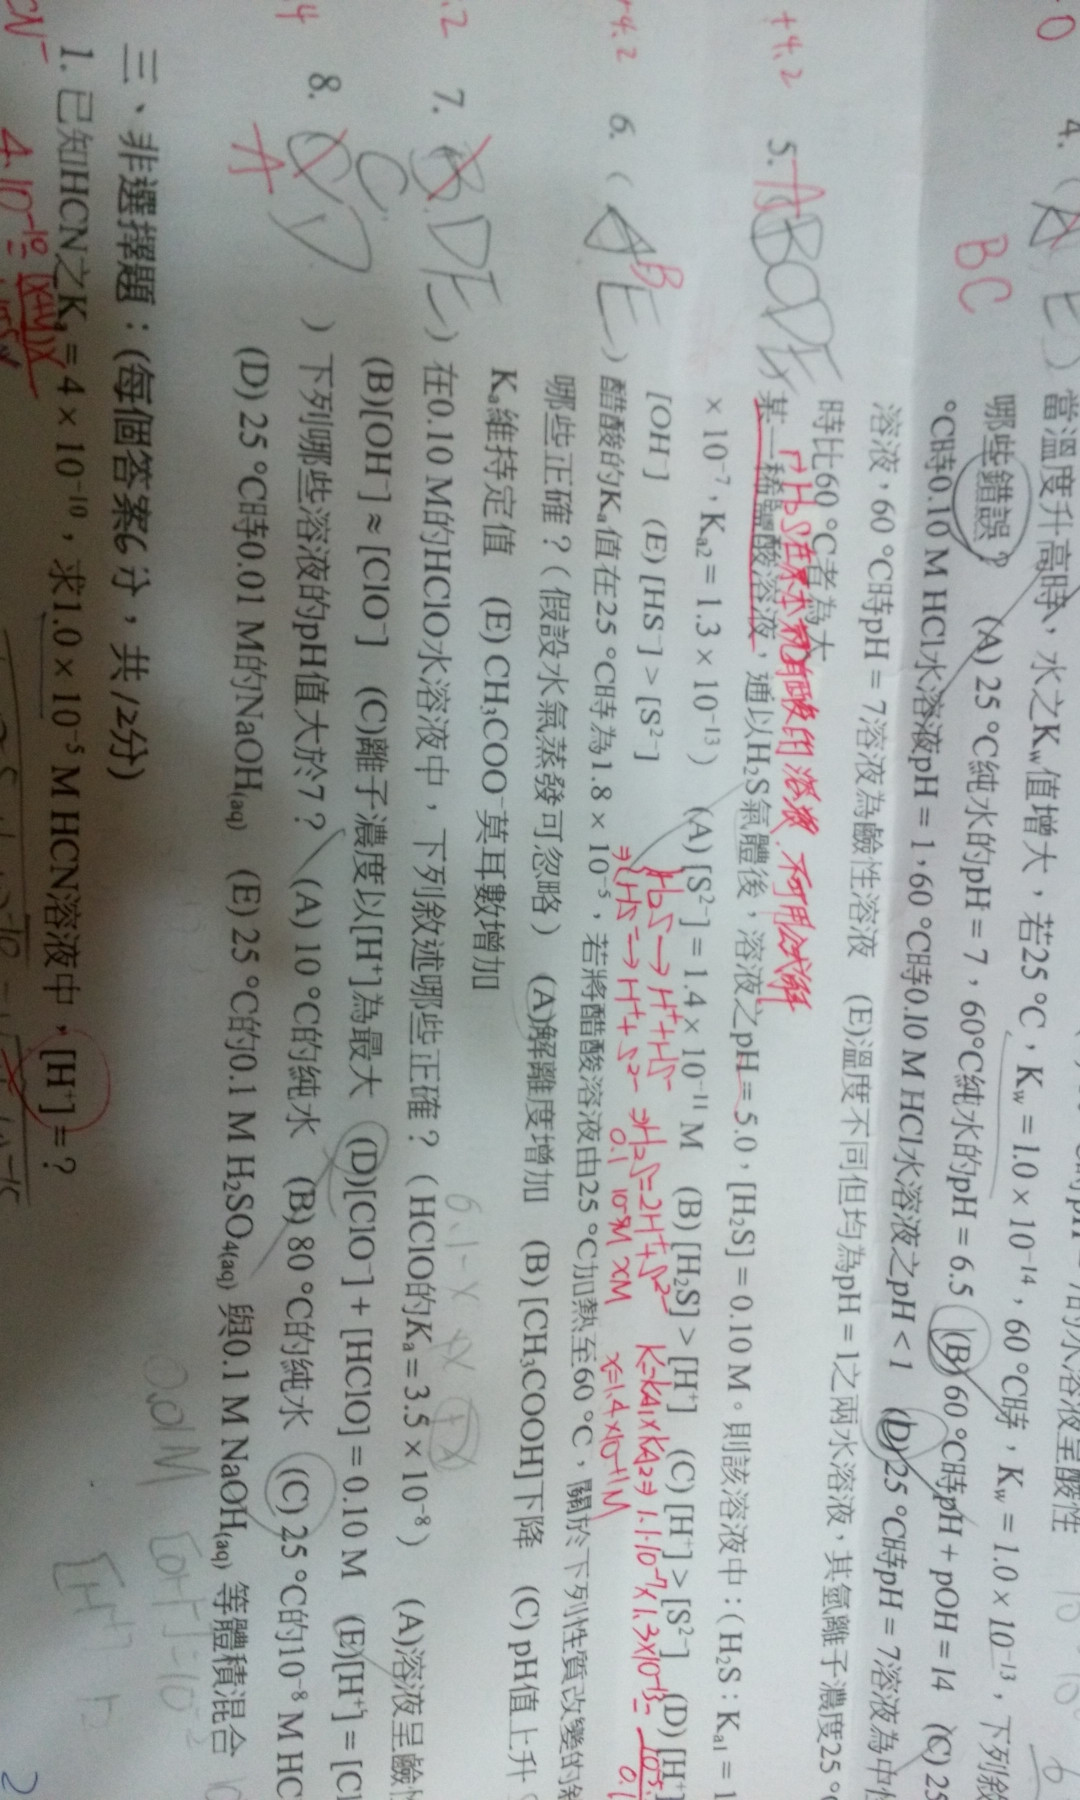 4. (AE) 當溫度升高時，水之Kw值增大，若25 ℃，Kw = 1.0 × 10⁻¹⁴，60 ℃時，Kw = 1.0 × 10⁻¹³，下列敘
BC
哪些錯誤？ (A) 25 ℃純水的pH = 7，60℃純水的pH = 6.5 (B) 60 ℃時pH + pOH = 14 (C) 25
℃時0.10 M HCl水溶液pH = 1，60 ℃時0.10 M HCl水溶液之pH < 1 (D) 25 ℃時pH = 7溶液為中性
溶液，60 ℃時pH = 7溶液為鹼性溶液 (E)溫度不同但均為pH = 1之兩水溶液，其氫離子濃度25 ℃
時比60 ℃者為大
+4.2
5. ABCDE 某一稀鹽酸溶液，通以H₂S氣體後，溶液之pH = 5.0，[H₂S] = 0.10 M。則該溶液中：(H₂S：Ka1 = 1
× 10⁻⁷，Ka2 = 1.3 × 10⁻¹³) (A) [S²⁻] = 1.4 × 10⁻¹¹ M (B) [H₂S] > [H⁺] (C) [H⁺] > [S²⁻] (D) [H⁺]
[OH⁻] (E) [HS⁻] > [S²⁻]
H₂S → H⁺ + HS⁻
HS⁻ → H⁺ + S²⁻
⇒ H₂S ⇌ 2H⁺ + S²⁻
x = 1.4×10⁻¹¹M
4.2
6. (ABE) 醋酸的Ka值在25 ℃時為1.8 × 10⁻⁵，若將醋酸溶液由25 ℃加熱至60 ℃，關於下列性質改變的
哪些正確？(假設水氣蒸發可忽略) (A)解離度增加 (B) [CH₃COOH]下降 (C) pH值上升
Ka維持定值 (E) CH₃COO⁻莫耳數增加
.2
7. BDE) 在0.10 M的HClO水溶液中，下列敘述哪些正確？(HClO的Ka = 3.5 × 10⁻⁸) (A)溶液呈鹼
C
(B)[OH⁻] ≈ [ClO⁻] (C)離子濃度以[H⁺]為最大 (D)[ClO⁻] + [HClO] = 0.10 M (E)[H⁺] = [Cl
4
8. CD ) 下列哪些溶液的pH值大於7？ (A) 10 ℃的純水 (B) 80 ℃的純水 (C) 25 ℃的10⁻⁸ M HC
A
(D) 25 ℃時0.01 M的NaOH(aq) (E) 25 ℃的0.1 M H₂SO₄(aq) 與0.1 M NaOH(aq) 等體積混合
0.01M [OH⁻]=10⁻²
三、非選擇題：(每個答案6分，共12分)
1. 已知HCN之Ka = 4 × 10⁻¹⁰，求1.0 × 10⁻⁵ M HCN溶液中，[H⁺] = ?
CN⁻
2